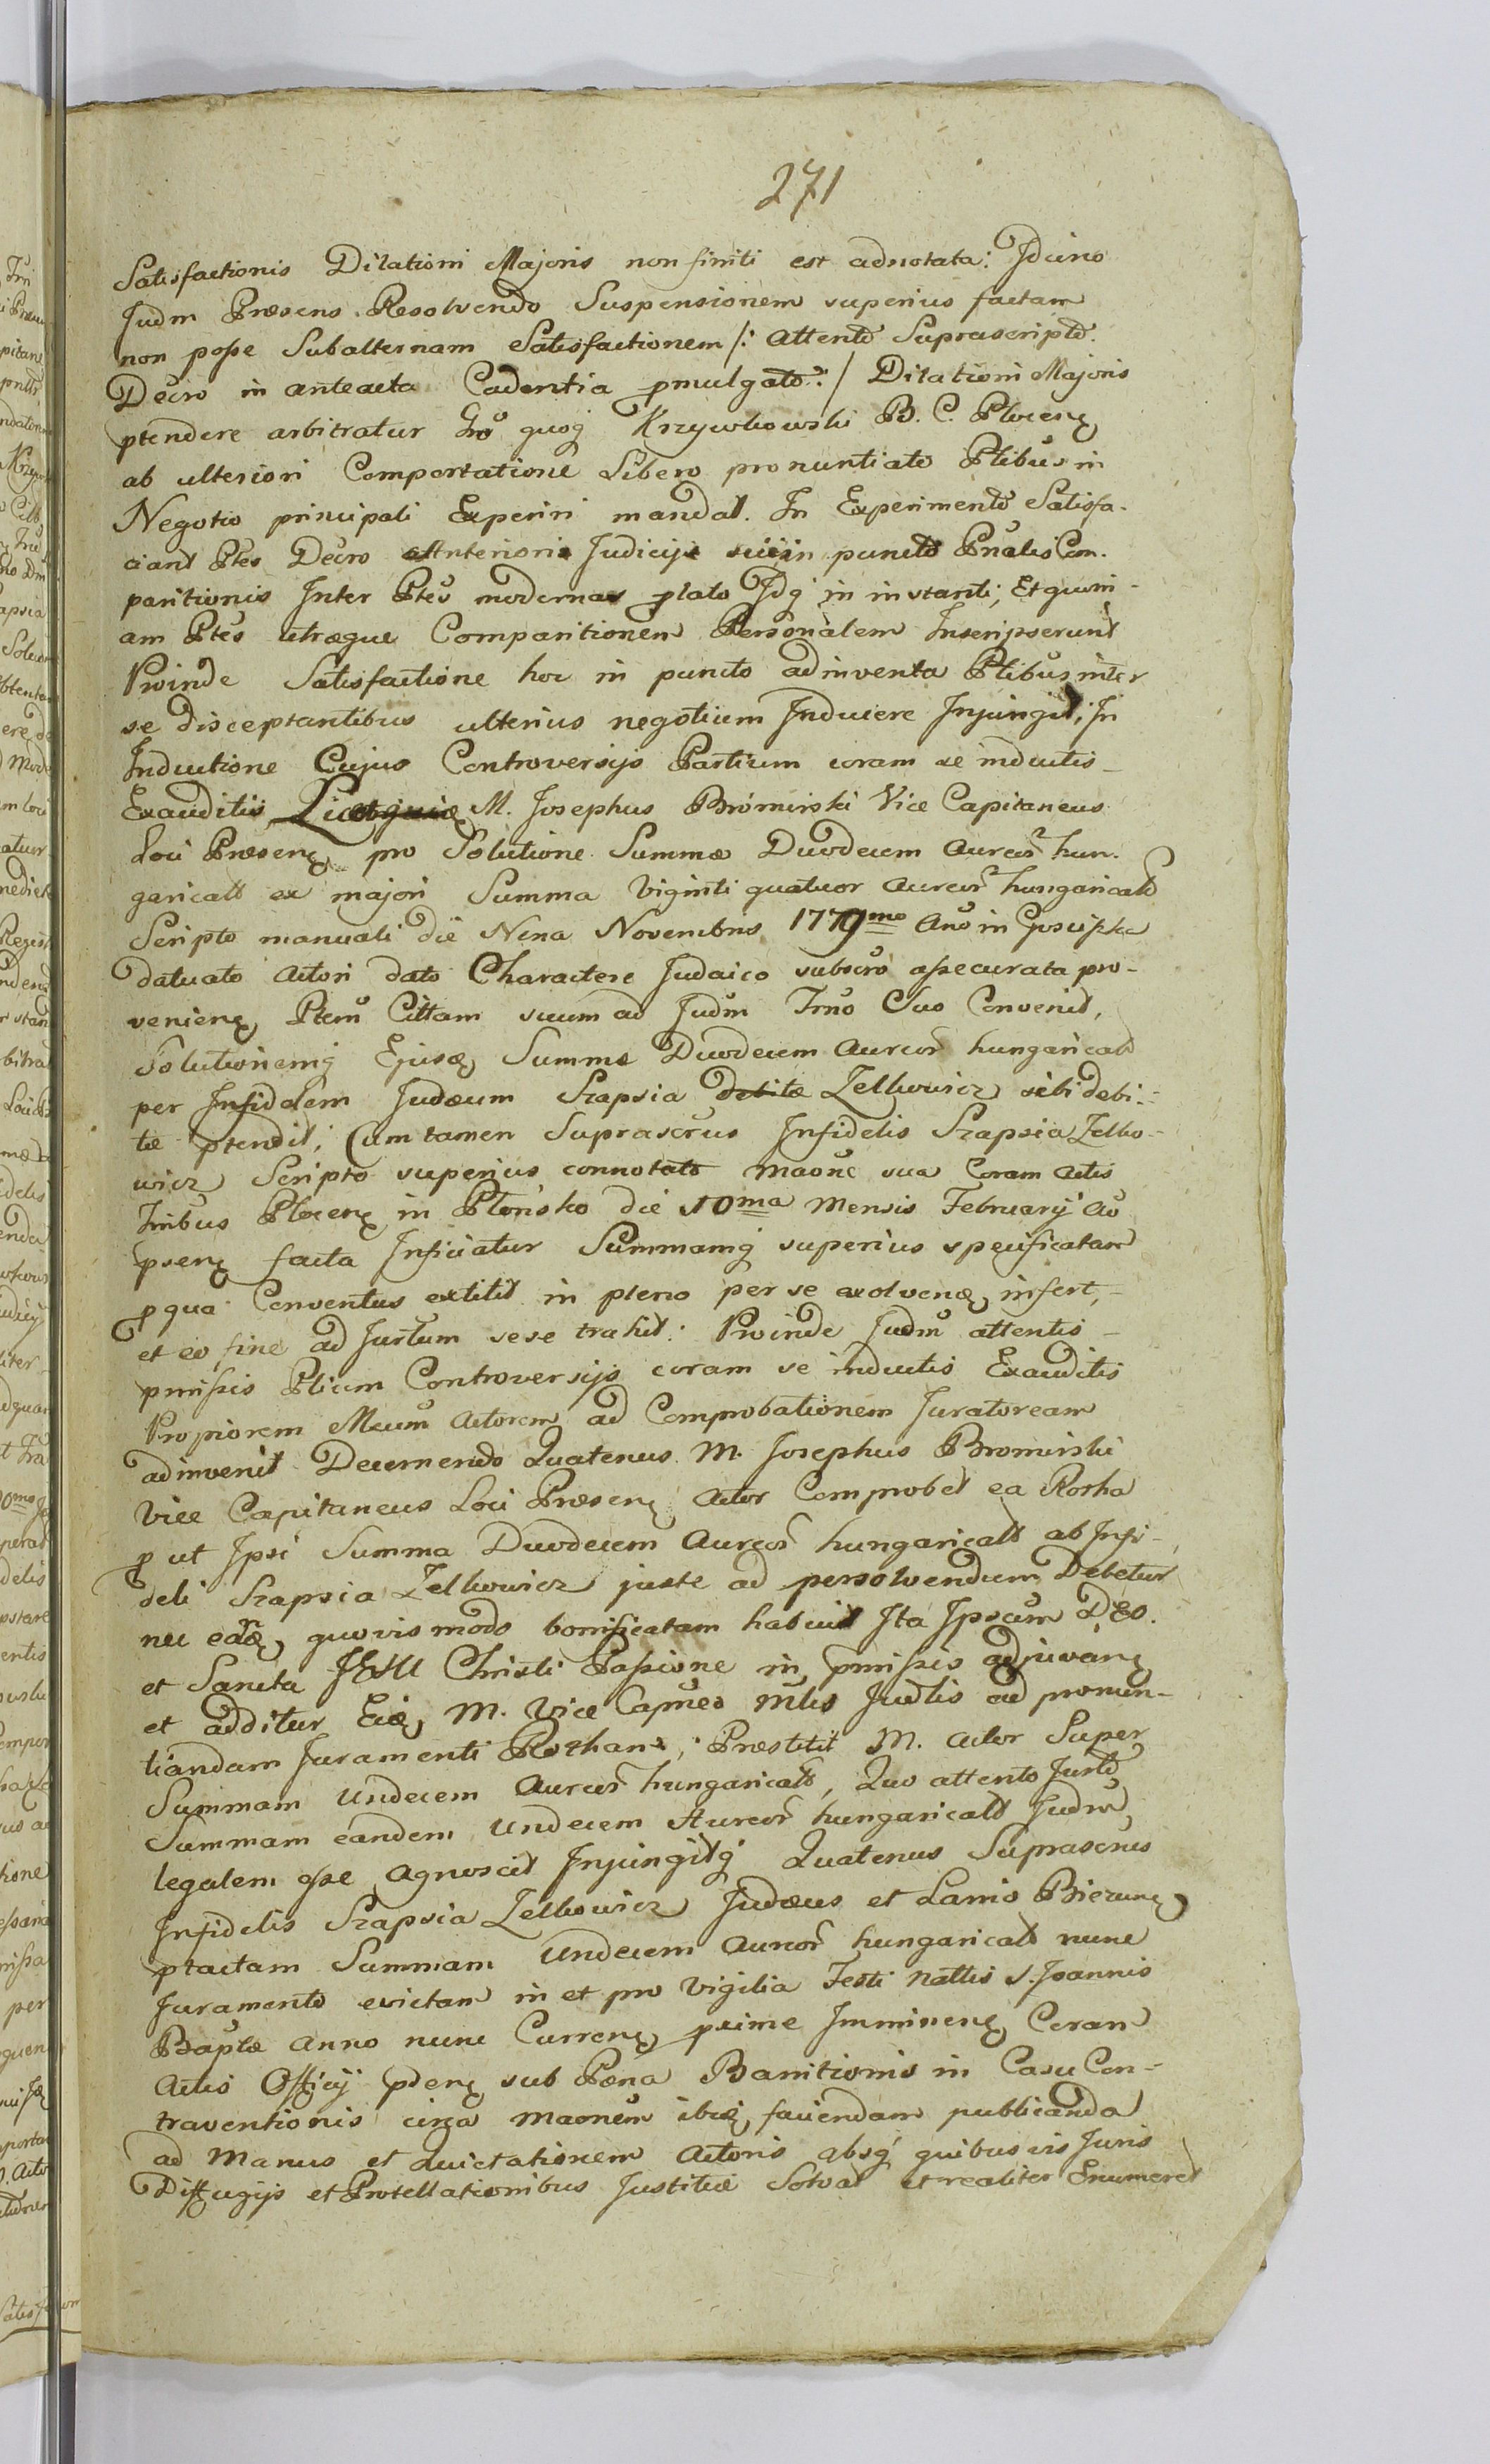 271
Satisfactionis Dilationi Majoris non finiti est adnotata: Jdcirco
Judm Præsens Resolvendo Suspensionem superius factam
non posse Subalternam Satisfactionem /: attento Suprascripto
Decro in anteacta Cadentia pmulgato :/ Dilationi Majoris
ptendere arbitratur Gno quoq Krzywkowski B. C. Plocen
ab ulteriori Comportatione Libero pronuntiato Ptibus in
Negotio principali Experiri mandat. In Experimento Satisfa-
ciant Ptes Decro Anterioris Judicij sui in puncto Pnalis Com-
paritionis Inter Ptes modernas plato Jdq in instanti; Et quoni-
am Ptes utræque Comparitionem Personalem Inscripserunt
Proinde Satisfactione hoc in puncto adinventa Ptibus inter
se disceptantibus ulterius negotium Inducere Injungit; In
Inductione Cujus Controversijs Partium coram se inductis
Exauditis, M. Josephus Bromirski Vice Capitaneus
Loci Præsen pro Solutione Summæ Duodecem aureor hun-
garicall ex majori Summa Viginti quatuor aureor hungaricall
Scripto manuali die Nona Novembris 1779mo Ano in Gosciszka
datuato Actori dato Charactere Judaico subscro assecurata pro-
venien Ptem Cittam suum ad Judm Trno Suo Convenit,
Solutionemq Ejusd Summæ Duodecem aureor hungaricall
per Infidelem Judæum Szapsia debitæ Zelkowicz sibi debi-
tæ ptendit; Cum tamen Suprascrus Infidelis Szapsia Zelko-
wicz Scripto superius connotato maone sua Coram Actis
Tribus Plocen in Płońsko die 10ma Mensis February Ao
psen facta Inficiatur Summamq superius specificatam
p qua Conventus extitit in pleno per se exolven infert,
et eo fine ad Jurtum sese trahit: Proinde Judm attentis
pmissis Ptium Controversijs coram se inductis Exauditis
Propiorem Mcum Actorem ad Comprobationem Juratoream
adinvenit Decernendo Quatenus M. Josephus Bromirski
Vice Capitaneus Loci Præsen Actor Comprobet ea Rotha
p ut Ipsi Summa Duodecem Aureor hungaricall ab Infi-
deli Szapsia Zelkowicz juste ad persolvendum Debetur
nec quovis modo bonificatam habuit Ita Ipsum DEO.
et Sancta JESU Christi Passione in pmissis adjuvan
et additur M. Vice Capneo Judlis ad pronun-
tiandam Juramenti Rotham; Præstitit M. Actor Super
Summam Undecem Aureor hungaricall, Quo attento Jurto
Summam eandem Undecem Aureor hungaricall Judm
legalem esse agnoscit Injungitq Quatenus Suprascrus
Infidelis Szapsia Zelkowicz Judæus et Lanio Biezun
ptactam Summam Undecem aureor hungaricall nunc
Juramento evictam in et pro Vigilia Festi Natlis S. Joannis
Baptæ anno nunc Curren pxime Imminen Coram
Actis Officij pden sub Pæna Banitionis in Casu Con-
traventionis circa maonem ibid faciendam publicanda
ad Manus et Quietationem Actoris absq quibusvis Juris
Diffugijs et Protellationibus Justitiæ Solvat et realiter Enumeret